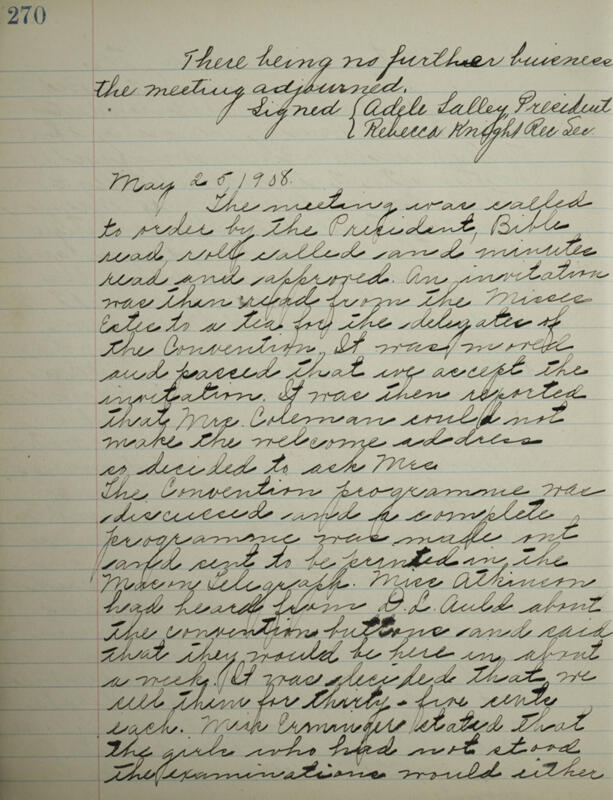 270
There being no further buisness
the meeting adjourned.
Signed { Adele Salley President
{ Rebecca Knight Rec Sec
May 25, 1908.
The meeting was called
to order by the President, Bible
read, roll called and minutes
read and approved. An invitation
was then read from the Misses
Estes to a tea for the delegates of
the Convention. It was moved
and passed that we accept the
invitation. It was then reported
that Mrs. Coleman could not
make the welcome address
so decided to ask Mrs
The Convention programme was
discussed and a complete
programme was made out
and sent to be printed in the
Macon Telegraph. Miss Atkinson
had heard from D. L. Auld about
the convention buttons and said
that they would be here in about
a week. It was decided that we
sell them for thirty-five cents
each. Miss Erminger stated that
the girls who had not stood
the examinations would either